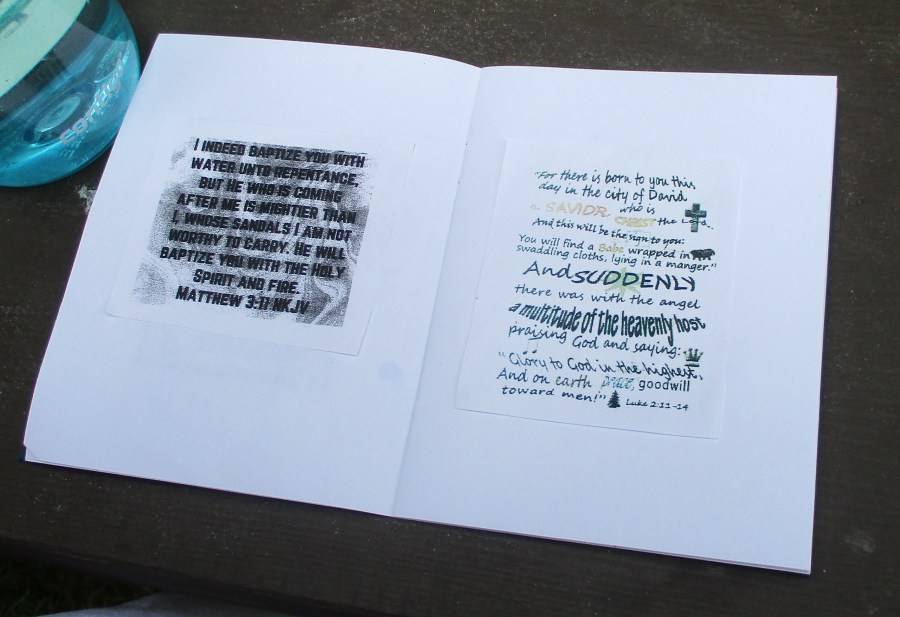 I INDEED BAPTIZE YOU WITH
WATER UNTO REPENTANCE,
BUT HE WHO IS COMING
AFTER ME IS MIGHTIER THAN
I, WHOSE SANDALS I AM NOT
WORTHY TO CARRY. HE WILL
BAPTIZE YOU WITH THE HOLY
SPIRIT AND FIRE.
MATTHEW 3:11 NKJV
"For there is born to you this
day in the city of David
a SAVIOR, who is
CHRIST the Lord.
And this will be the sign to you:
You will find a Babe wrapped in
swaddling cloths, lying in a manger."
And SUDDENLY
there was with the angel
a multitude of the heavenly host
praising God and saying:
"Glory to God in the highest,
And on earth peace, goodwill
toward men!" Luke 2:11-14